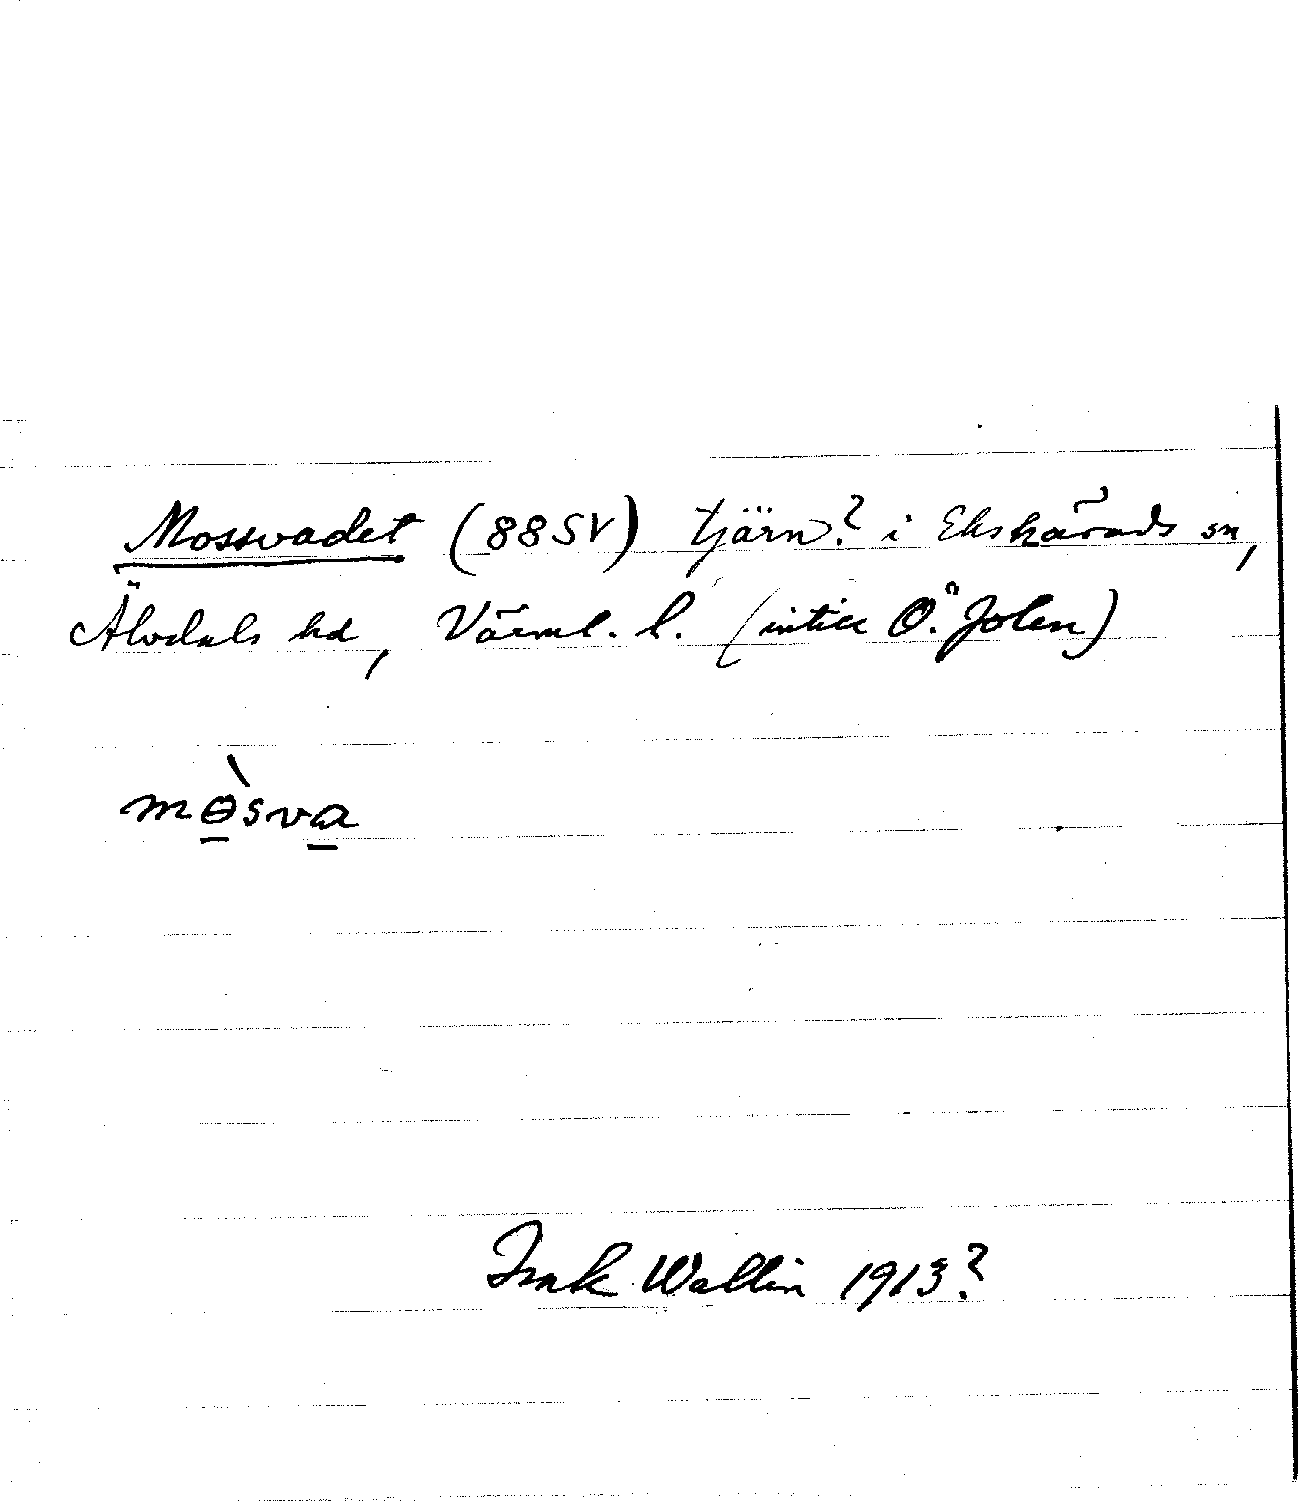 Mossvadet (88SV) tjärn? i Ekshärads sn,
Älvdals hd, Värml. l. (intill Ö. Jolen)
mɵ̀sva
Frnk Wallin 1913?